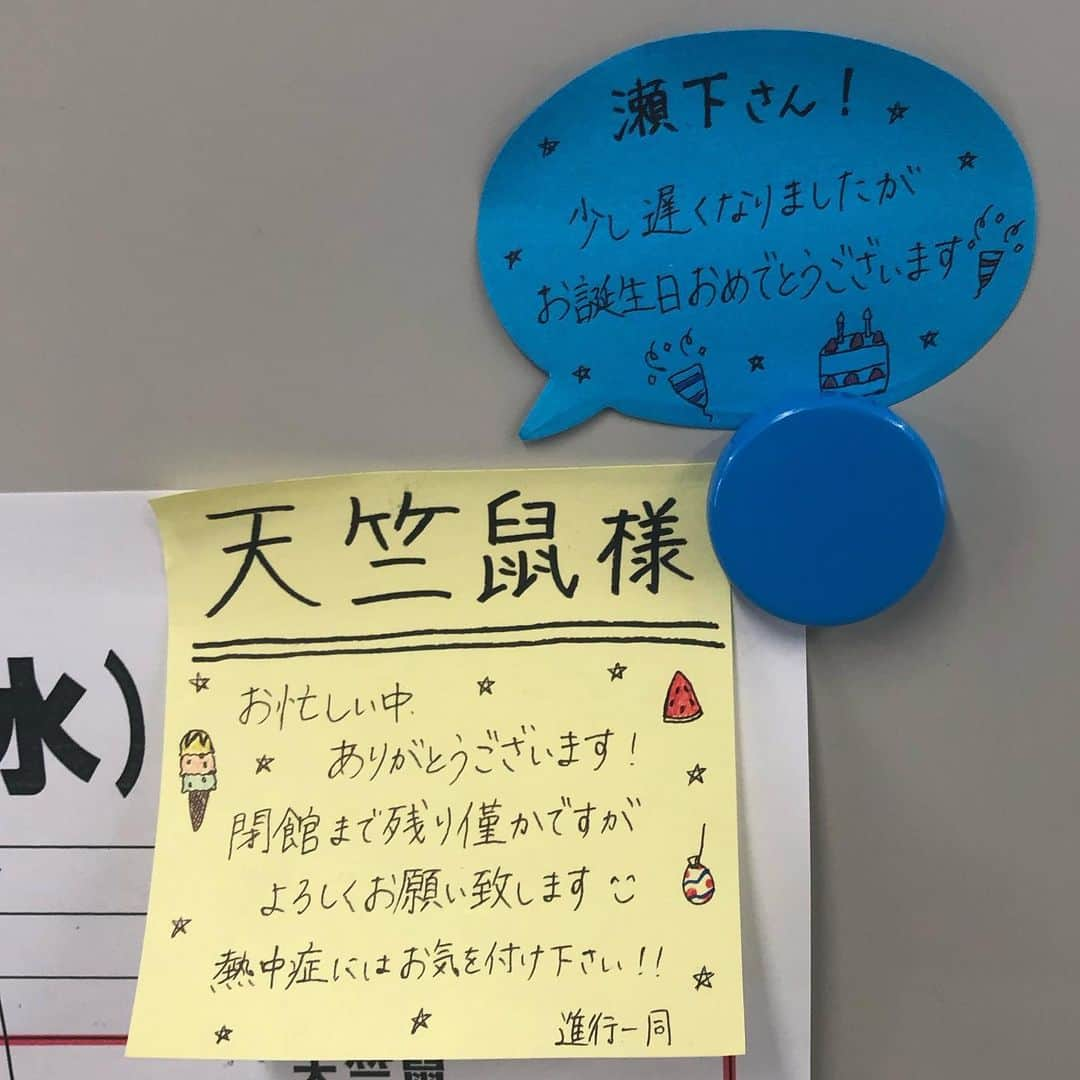 瀬下さん!
少し遅くなりましたが
お誕生日おめでとうございます
天竺鼠様
お忙しい中、
ありがとうございます!
閉館まで残り僅かですが
よろしくお願い致します
熱中症にはお気を付け下さい!!
進行一同
水)
天竺鼠